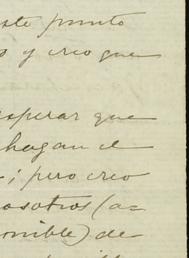 este punto
s y creo que
esperar que
hagan el
; pero creo
nosotros (a=
ponible) de